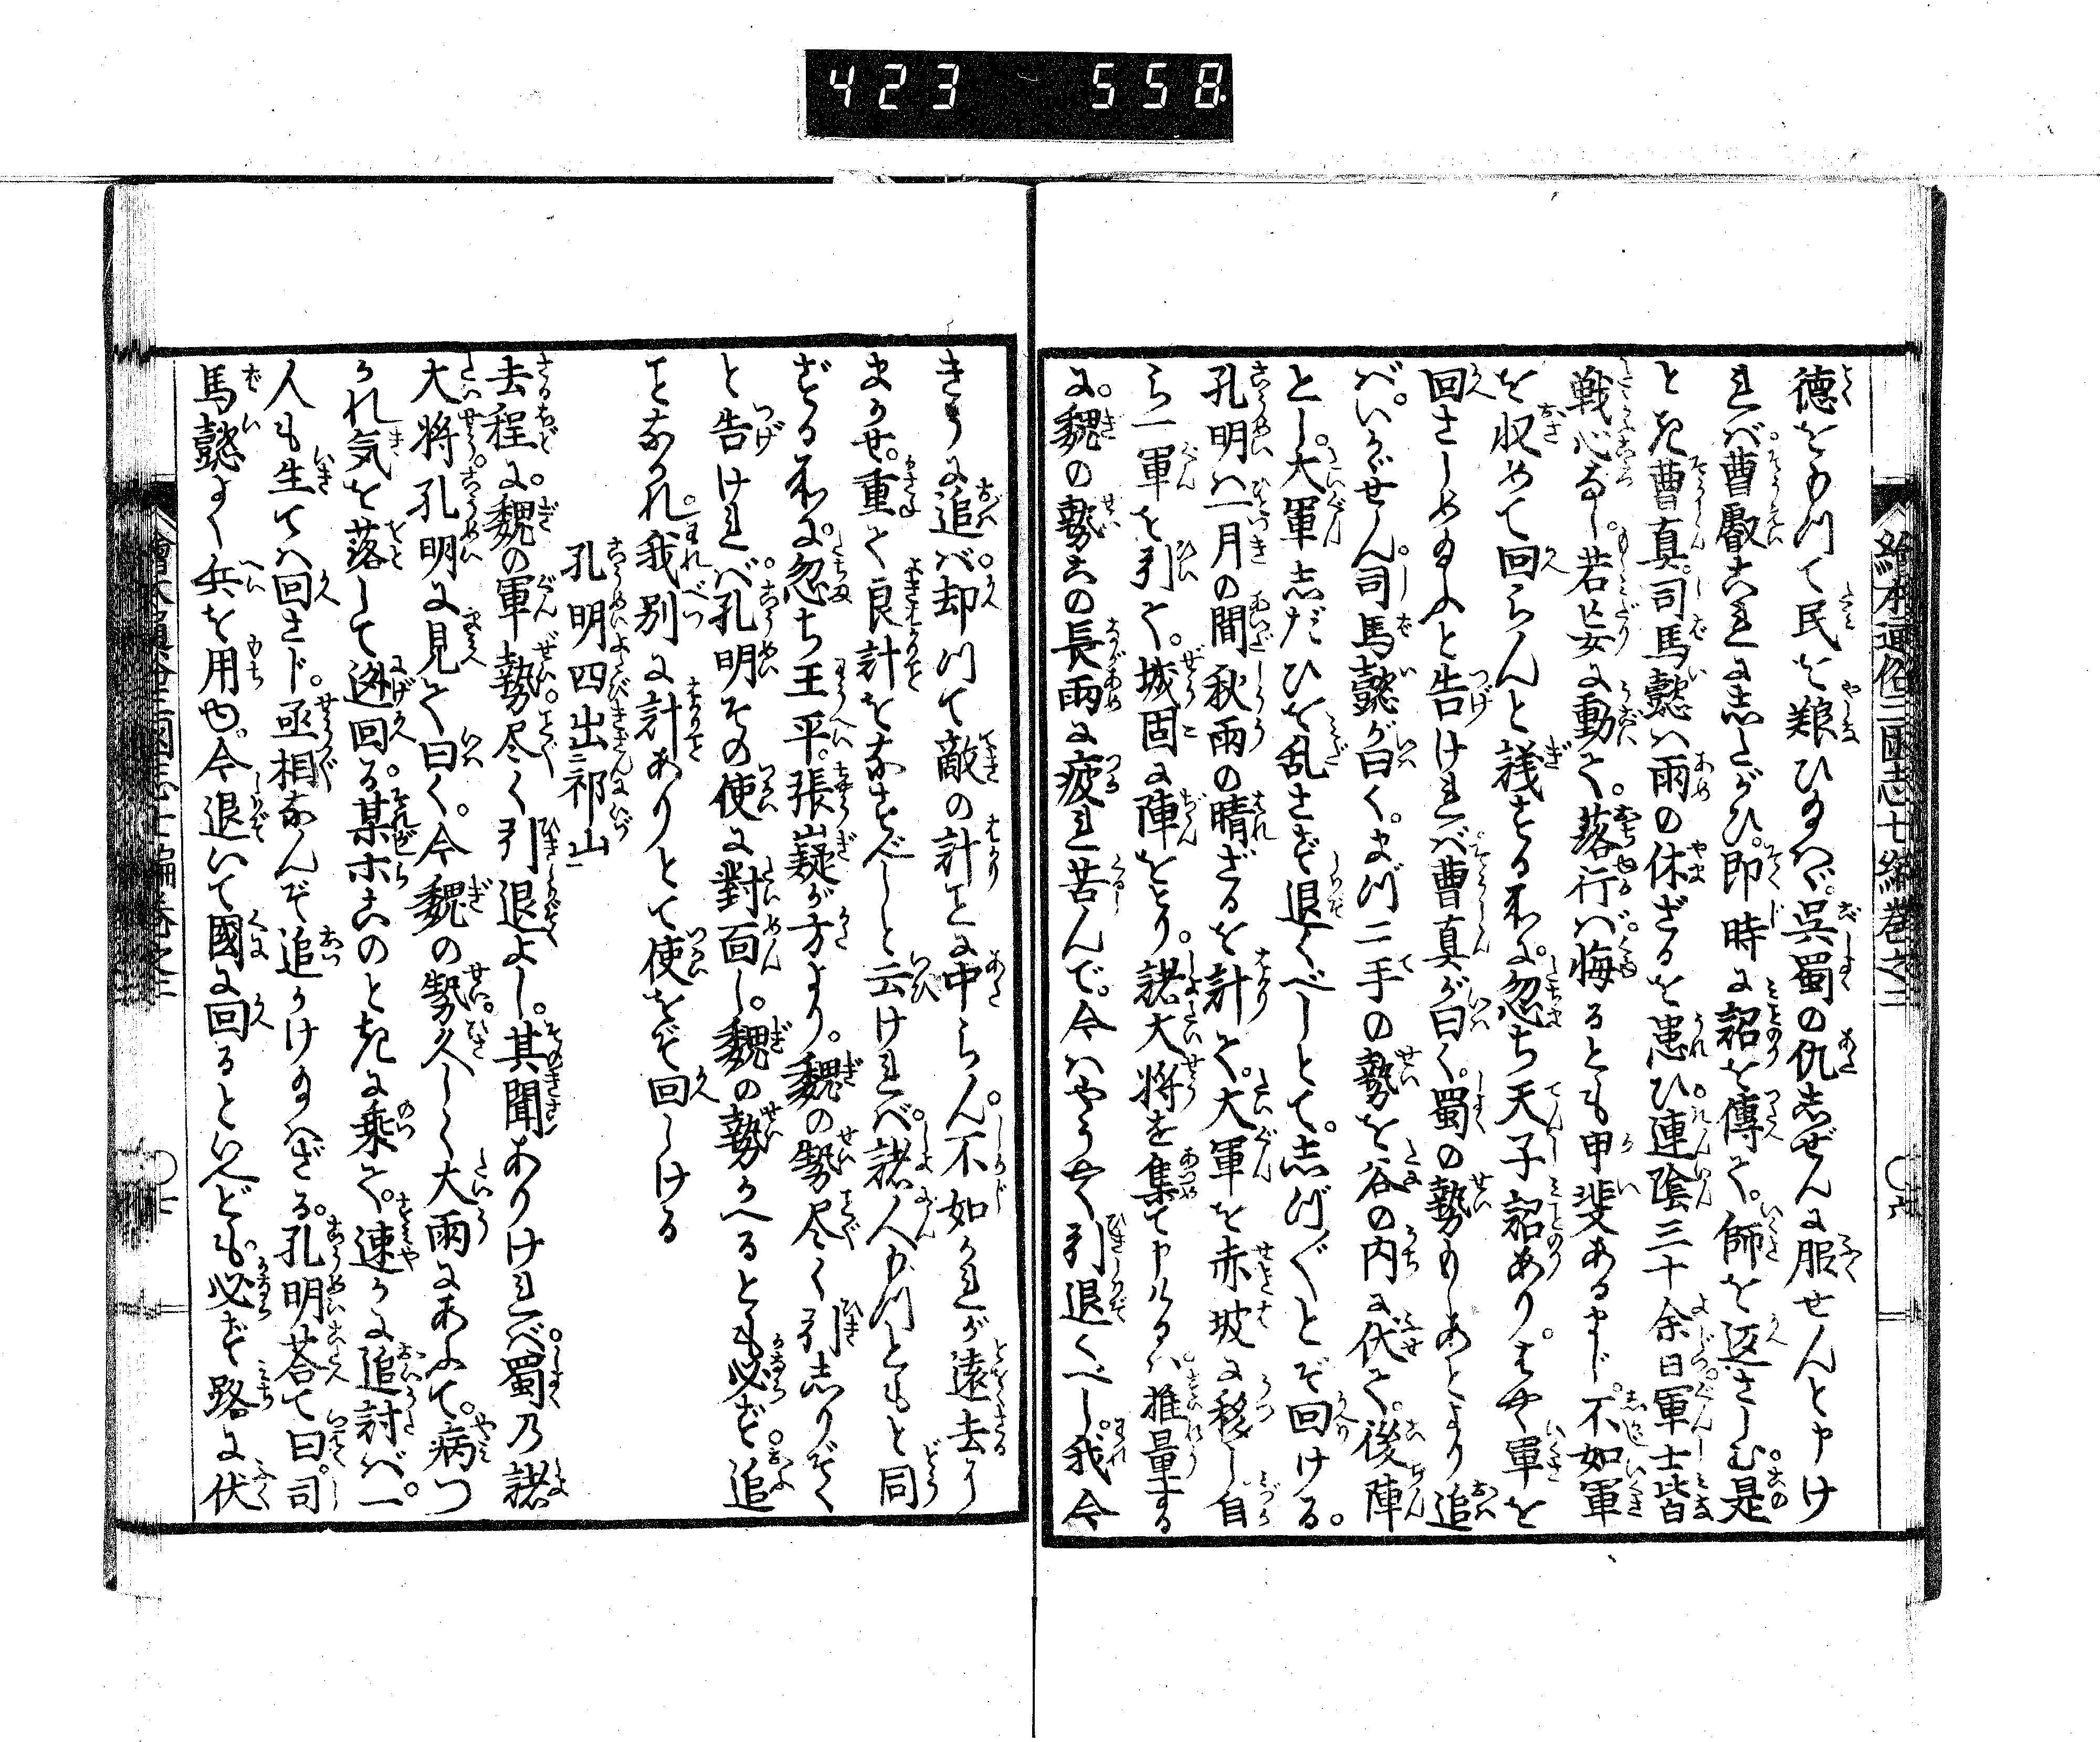 423 558
繪本通俗三國志七編巻之二
徳をかつて民を艱ひ給へバ呉蜀の仇志ぜんに服せんと申け
れバ曹叡これに志たがひ即時に詔を傳て師を返さしむ是
とき曹真司馬懿ハ雨の休ざるを患ひ連陰三十余日軍士皆
戦心なし若妄に動て落行バ悔るとも甲斐あるまじ不如軍
を収めて回らんと議する所に忽ち天子詔あり早く軍を
回さしめ給ふと告けれバ曹真が曰く蜀の勢もしあとより追
バいかゞせん司馬懿が曰くまづ二手の勢を谷の内に伏て後陣
とし大軍志だひを乱さず退くべしとて志づ〳〵とぞ回ける
孔明ハ一月の間秋雨の晴ざるを計て大軍を赤坡に移し自
ら一軍を引て城固に陣をとり諸大将を集て申けるハ推量する
に魏の勢この長雨に疲れ苦んで今ハやうやく引退くべし我今
きうに追バ却つて敵の計ことに中らん不如かれが遠去り
まかせ重て良計をなすべしと云けれバ諸人もつともと同
ずる所に忽ち王平張嶷が方より魏の勢尽く引志りぞく
と告けれバ孔明その使に對面し魏の勢かへるとも必ず追
ことなかれ我別に計ありとて使をぞ回しける
孔明四出二祁山一
去程に魏の軍勢尽く引退よし其聞ありけれバ蜀乃諸
大将孔明に見て曰く今魏の勢久しく大雨にあふて病つ
かれ気を落して逃回る某ホこのときに乗て速かに追討バ一
人も生てハ回さじ丞相なんぞ追かけ給ハざる孔明荅て曰司
馬懿よく兵を用ゆ今退いて國に回るといへども必ず路に伏